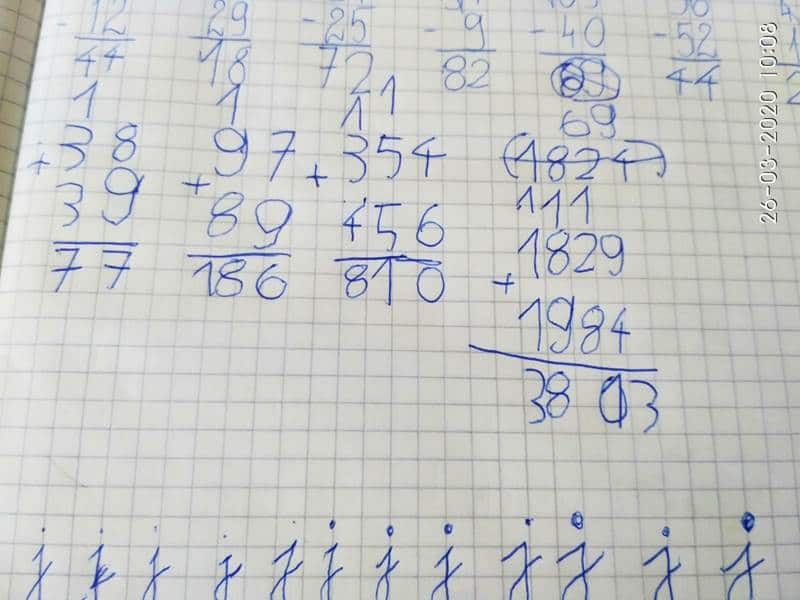 - 12 29 - 25 - 9 - 40 - 52
44 18 72 82 69 44
1 1 1 1 69
+ 38 97 + 354 (1824)
39 + 89 456 111
77 186 810 1829
+ 1984
3813
j j j j j j j j j j j j
26-03-2020 10:08